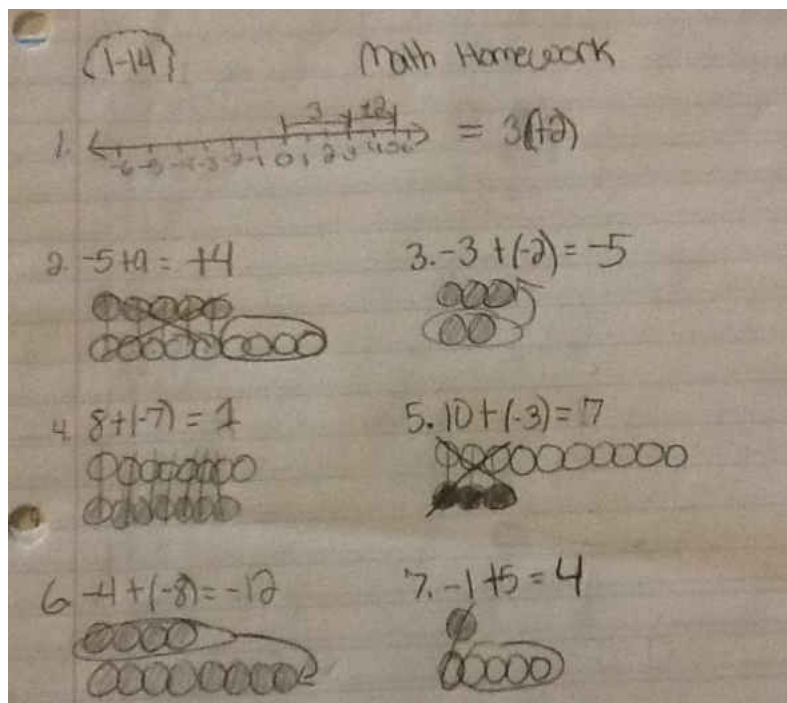 (1-14) Math Homework
1. 3 +2 = 3(+2)
-6 -5 -4 -3 -2 -1 0 1 2 3 4 5 6
2. -5+9 = +4 3. -3 + (-2) = -5
4. 8+(-7) = 1 5. 10+(-3) = 7
6. -4+(-8) = -12 7. -1+5 = 4